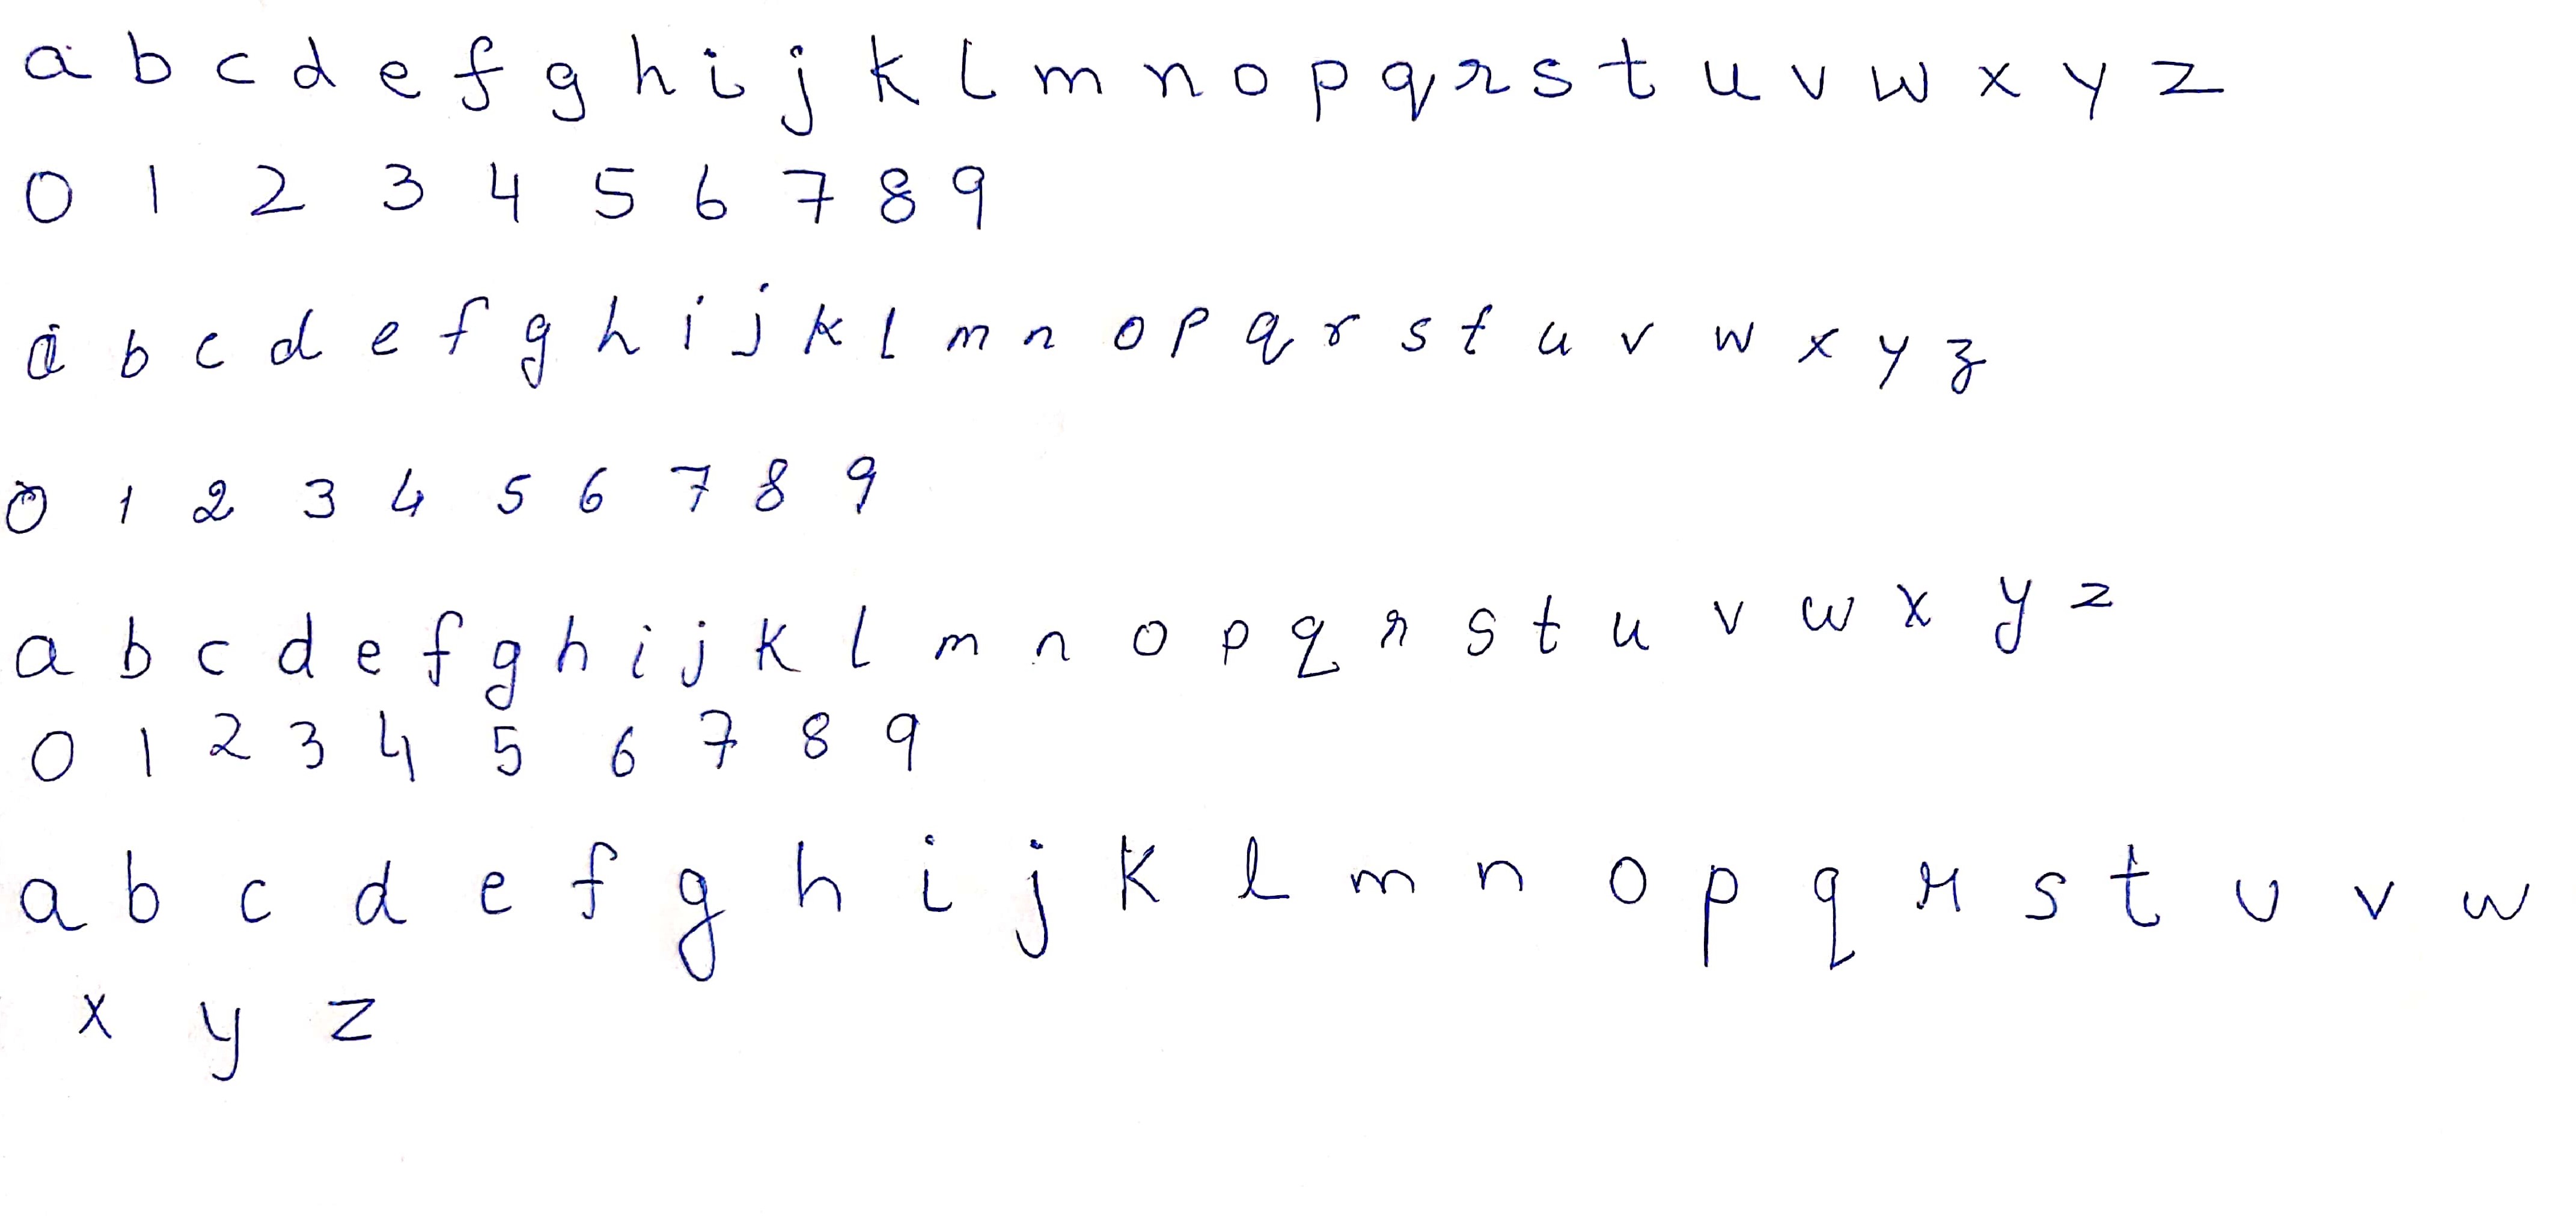 a b c d e f g h i j k l m n o p q r s t u v w x y z
0 1 2 3 4 5 6 7 8 9
a b c d e f g h i j k l m n o p q r s t u v w x y z
0 1 2 3 4 5 6 7 8 9
a b c d e f g h i j k l m n o p q r s t u v w x y z
0 1 2 3 4 5 6 7 8 9
a b c d e f g h i j k l m n o p q r s t u v w
x y z